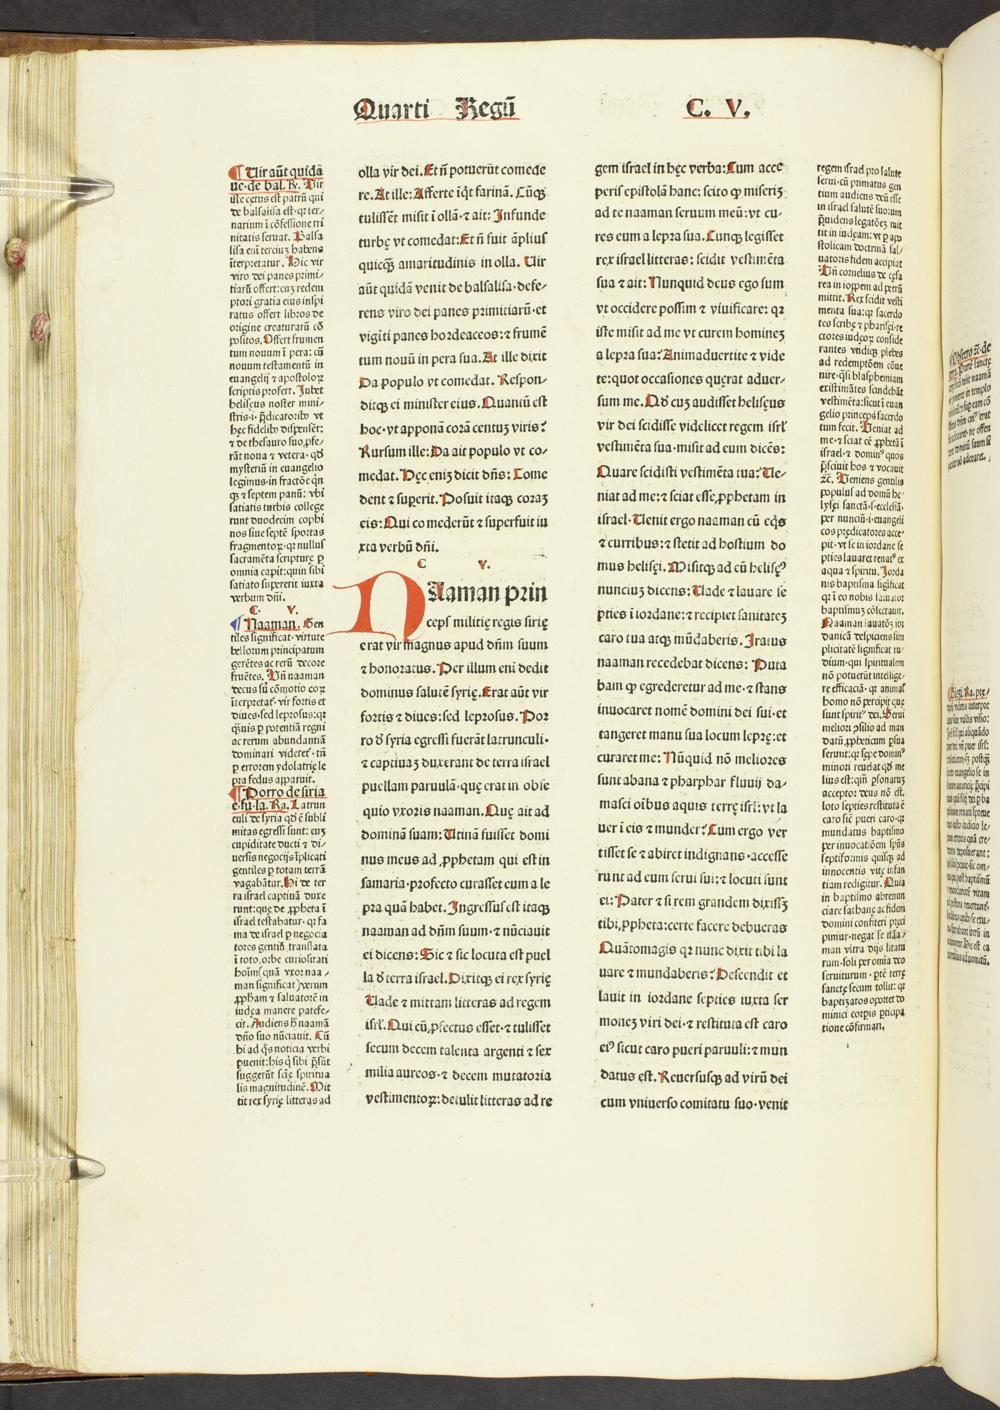 Quarti Regū
C. V.
¶ Uir aūt quidā
ue·de bal. R. Vir
iste cętus est patrū qui
de balsalisa est·qꝛ ter-
narium ī cōfessione tri
nitatis seruat. Balsa
lisa eni͛ tercius habens
īterpretatur. Hic vir
viro dei panes primi-
tiarū offert: cuꝫ redem
ptori gratia eius inspi
ratus offert libros de
origine creaturarū cō
positos. Offert frumen
tum nouum ī pera: cū
nouum testamentū in
euangelij ⁊ apostoloꝝ
scriptis profert. Jubet
heliseus noster mini-
stris·i·p̄dicatorib₉ vt
hęc fidelib₉ dispenset:
⁊ de thesauro suo ꝓfe-
rāt noua ⁊ vetera·qđ
mysteriū in euangelio
legimus·in fractōe q̄n
qꝫ ⁊ septem panū: vbi
satiatis turbis college
runt duodecim cophi
nos siue septē sportas
fragmentoꝝ·qꝛ nullus
sacramēta scripturę ꝑ
omnia capit: quin sibi
satiato supererit iuxta
verbum dn̄i.
C. V.
¶ Naaman. Gen
tiles significat·virtute
bellorum principatum
gerētes ac reꝝ decore
fruētes. Vn̄ naaman
decus siue cōmotio eoꝝ
īterpretat᷑·vir fortis et
diues: sed leprosus: qꝛ
q̄uis ꝑ potentiā regni
ac rerum abundantiā
dominari videret᷑·tn̄
ꝑ errorem ydolatrię le
pra fedus apparuit.
¶ Porro de siria
e·fu·la. Ra. Latrun
culi de syria qđ ē subli
mitas egressi sunt: cuꝫ
cupiditate ducti ⁊ di-
uersis negocijs īplicati
gentiles ꝑ totam terrā
vagabātur. Hi de ter
ra israel captiuā duxe
runt: quę de ꝓpheta ī
israel testabatur·qꝛ fa
ma de israel ꝑ negocia
tores gentiū translata
ī toto orbe curiositati
hoīm (quā vxor naa-
man significat) verum
ꝓpham ⁊ saluatorē in
iudęa manere patefe-
cit. Audiens h̄ naamā
dn̄o suo nūciauit. Cū
hi ad q̄s noticia verbi
ꝑuenit: his q̄ sibi p̄sūt
suggerūt sacę spiritua
lis magnitudinē. Mit
tit rex syrię litteras ad
olla vir dei. Et n̄ potuerūt comede
re. At ille: Afferte īq̇t farinā. Cūqꝫ
tulissēt misit ī ollā·⁊ ait: Infunde
turbę vt comedat: Et n̄ fuit āplius
quicq̄ꝫ amaritudinis in olla. Uir
aūt quidā venit de balsalisa·defe-
rens viro dei panes primitiarū·et
vigīti panes hordeaceos: ⁊ frumē
tum nouū in pera sua. At ille dixit
Da populo vt comedat. Respon-
ditqꝫ ei minister eius. Quantū est
hoc·vt apponā corā centuꝫ viris?
Rursum ille: Da ait populo vt co-
medat. Hęc eniꝫ dicit dn̄s: Come
dent ⁊ superit. Posuit itaqꝫ coraꝫ
eis: Qui comederūt ⁊ superfuit iu
xta verbū dn̄i.
C V.
NAaman prin
ceps militię regis sirię
erat vir magnus apud dn̄m suum
⁊ honoratus. Per illum eni dedit
dominus salutē syrię. Erat aūt vir
fortis ⁊ diues: sed leprosus. Por
ro đ syria egressi fuerāt latrunculi·
⁊ captiuaꝫ duxerant de terra israel
puellam paruulā·quę erat in obse
quio vxoris naaman. Quę ait ad
dominā suam: Utinā fuisset domi
nus meus ad ꝓphetam qui est in
samaria·profecto curasset eum a le
pra quā habet. Ingressus est itaqꝫ
naaman ad dn̄m suum·⁊ nūciauit
ei dicens: Sic ⁊ sic locuta est puel
la đ terra israel. Dixitqꝫ ei rex syrię
Uade ⁊ mittam litteras ad regem
isrl̄. Qui cū ꝓfectus esset·⁊ tulisset
secum decem talenta argenti ⁊ sex
milia aureos·⁊ decem mutatoria
vestimentoꝝ: detulit litteras ad re
gem israel in hęc verba: Cum acce
peris epistolā hanc: scito ꝙ miseriꝫ
ad te naaman seruum meū: vt cu-
res eum a lepra sua. Cunqꝫ legisset
rex israel litteras: scidit vestimēta
sua ⁊ ait: Nunquid deus ego sum
vt occidere possim ⁊ viuificare: qꝛ
iste misit ad me vt curem homineꝫ
a lepra sua? Animaduertite ⁊ vide
te: quot occasiones quęrat aduer-
sum me. Qđ cuꝫ audisset helisęus
vir dei scidisse videlicet regem isrl̄
vestimēta sua·misit ad eum dicēs:
Quare scidisti vestimēta tua? Ue-
niat ad me: ⁊ sciat esse ꝓphetam in
israel·Uenit ergo naaman cū eq̇s
⁊ curribus: ⁊ stetit ad hostium do
mus helisęi. Misitqꝫ ad eū helisę₉
nunciuꝫ dicens: Uade ⁊ lauare se
pties ī iordane: ⁊ recipiet sanitateꝫ
caro tua atqꝫ mūdaberis. Iratus
naaman recedebat dicens: Puta
bam ꝙ egrederetur ad me·⁊ stans
inuocaret nomē domini dei sui·et
tangeret manu sua locum leprę: et
curaret me: Nūquid nō meliores
sunt abana ⁊ pharphar fluuij da-
masci oībus aquis terrę isrl̄: vt la
uer ī eis ⁊ munder? Cum ergo ver
tisset se ⁊ abiret indignans·accesse
runt ad eum serui sui: ⁊ locuti sunt
ei: Pater ⁊ si rem grandem dixissꝫ
tibi ꝓpheta: certe facere debueras
Quātomagis qꝛ nunc dixit tibi la
uare ⁊ mundaberis? Descendit et
lauit in iordane septies iuxta ser
moneꝫ viri dei·⁊ restituta est caro
ei₉ sicut caro pueri paruuli: ⁊ mun
datus est. Reuersusqꝫ ad virū dei
cum vniuerso comitatu suo·venit
regem israel pro salute
serui·cū primatus gen
tium audiens deū esse
in israel salutē suorum
p̄uidens legatōeꝫ mit
tit in iudęam: vt ꝑ apo
stolicam doctrinā sal-
uatoris fidem accipiat
Vn̄ cornelius de cęsa
rea in ioppem ad petrū
mittit. Rex scidit vesti
menta sua: qꝛ sacerdo
tes scribę ⁊ pharisęi·re
ctores iudęoꝝ conside
rantes vndiqꝫ plebes
ad redemptōem cōue
nire·q̄si blasphemiam
existimātes scindebāt
vestimēta: sicut ī euan
gelio princeps sacerdo
tum fecit. Veniat ad
me·⁊ sciat eē ꝓphetā ī
israel·⁊ domin₉ quos
p̄sciuit hos ⁊ vocauit
⁊c. Veniens gentilis
populus ad domū he-
lysęi sanctā·s·ecclesiā·
per nunciū·i·euangeli
cos prędicatores acce-
pit·vt se in iordane se
pties lauaret renat₉ ex
aqua ⁊ spiritu. Iorda
nis baptisma significat
qꝛ ī eo nobis lauator
baptismus cōsecrauit.
Naaman lauatōꝫ ior
danicā despiciens sim
plicitatē significat ru-
dium·qui spiritualem
nō potuerūt intellige-
re efficaciā·qꝛ animal
homo nō percipit quę
sunt spirit₉ dei. Serui
meliori ꝯsilio ad man
datū ꝓpheticum ꝑsua
serunt: qꝛ sępe domin₉
minori reuelat qđ me
lius est: qm̄ ꝑsonarū
acceptor deus nō est.
loto septies restituta ē
caro sic̄ pueri caro·qꝛ
mundatus baptismo
per inuocatōem sp̄us
septiformis quisqꝫ ad
innocentis vitę infan
tiam redigitur. Quia
in baptismo abrenun
ciare sathanę ac fidem
domini confiteri pręci
pimur·negat se naa-
man vltra dijs litatu
rum·soli per omīa deo
seruiturum·ptē terrę
sanctę secum tollit: qꝛ
baptiꝫatos oportet do
minici corpis ꝑticipa
tione cōfirmari.